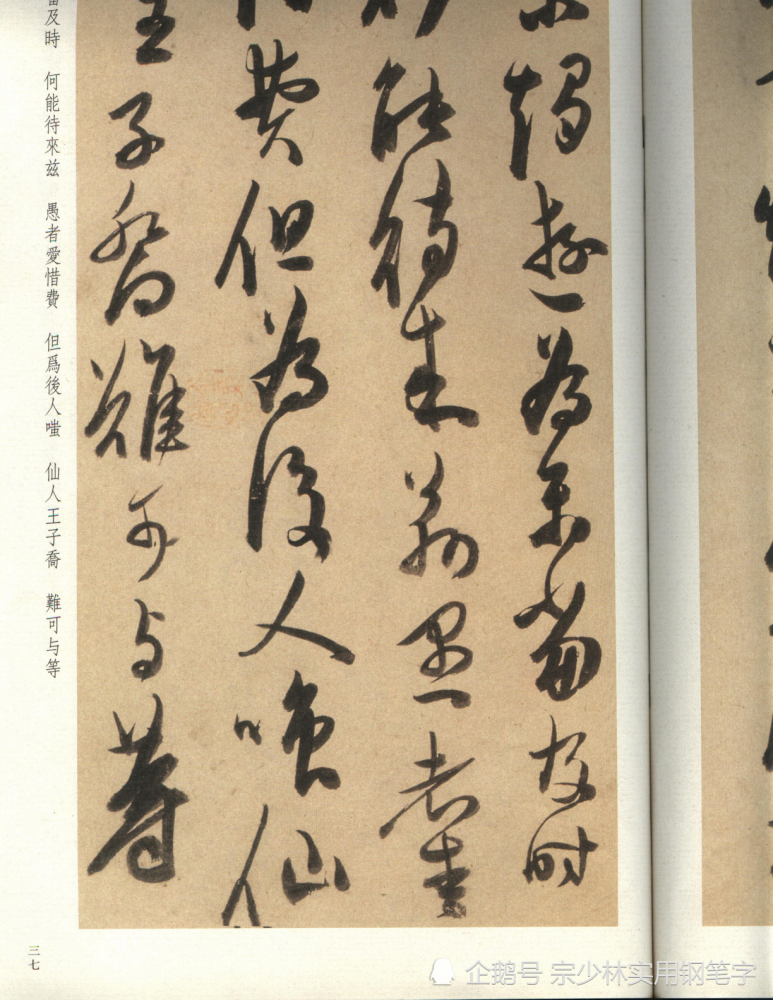 燭遊為樂當及时
能待来茲愚者愛
費但為後人嗤仙
王子喬難可与等
及時　何能待來兹　愚者愛惜費　但爲後人嗤　仙人王子喬　難可与等
三七
企鹅号 宗少林实用钢笔字